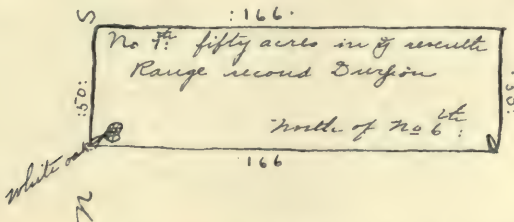 S
:166.
No 7th: fifty acres in ye seventh
Range second Division
North of No 6th:
:50:
:50:
white oak
166
N